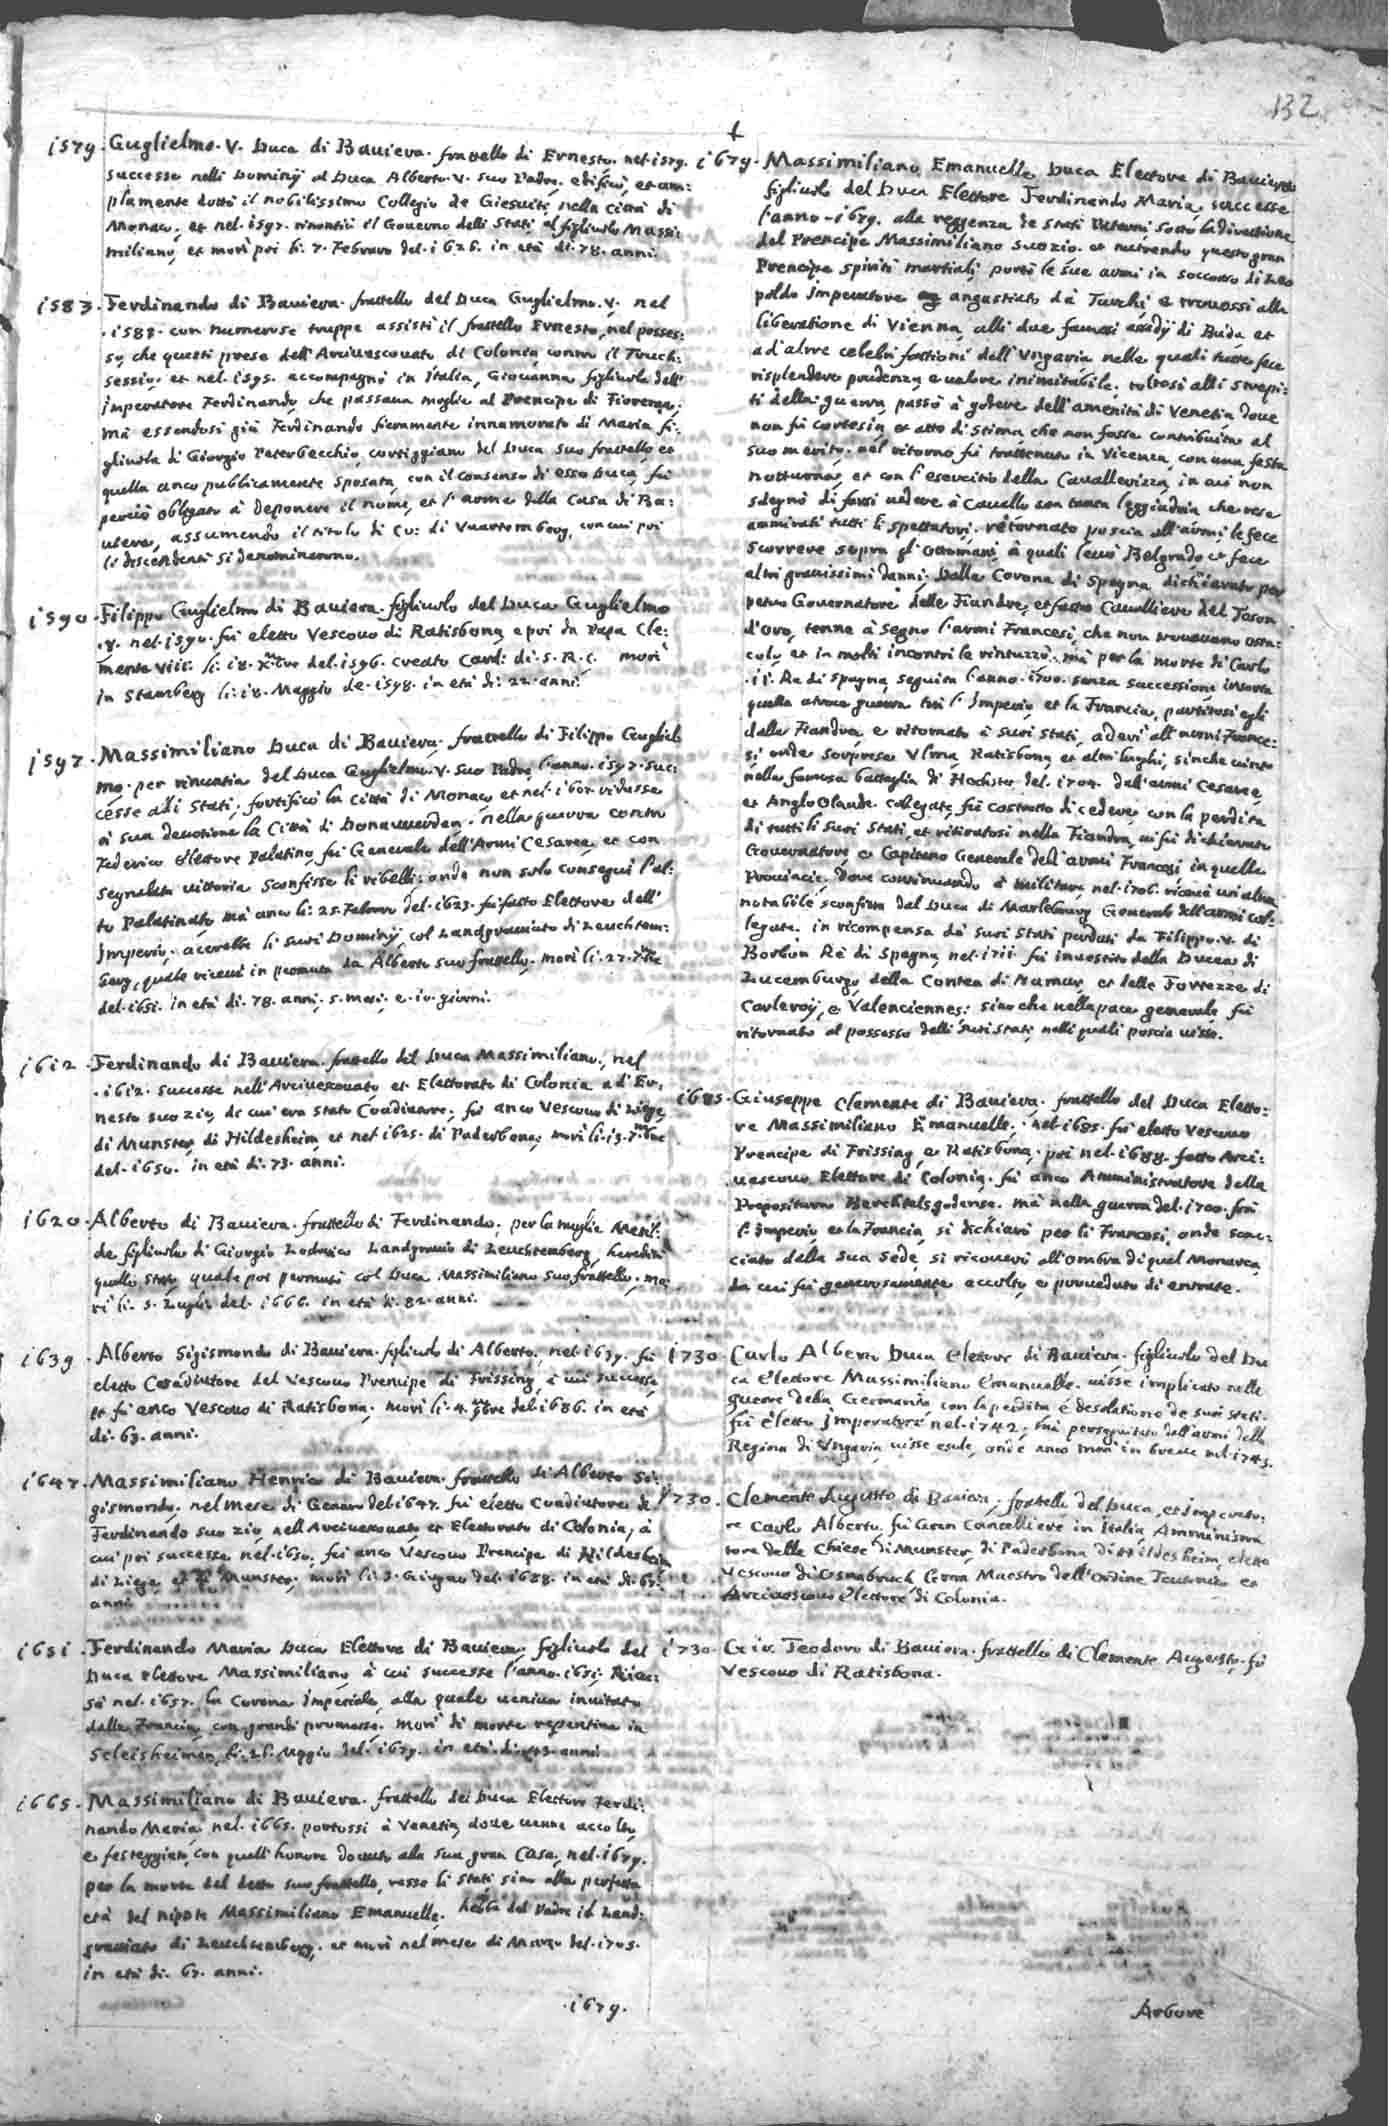 132
1579. Guglielmo. V. Duca di Bauiera. frattello di Ernesto. nel. 1579.
successe nelli Dominij al Duca Alberto. V. suo Padre, edificò, et am:
plamente dottò il nobilissimo Collegio de Giesuiti nella Città di
Monaco, et nel. 1597. rinontiò il Gouerno delli Stati, al figliuolo Massi:
miliano, et morì poi li. 7. Febraro del. 1626. in età di. 78. anni.
1583. Ferdinando di Bauiera. frattello del Duca Guglielmo. V. nel
. 1588. con numerose truppe assistì il frattello Ernesto, nel posses:
so, che questi prese dell'Arciuescouato di Colonia, contro il Truch:
sessio. et nel. 1595. accompagnò in Italia, Giouanna figliuola dell'
Imperatore Ferdinando, che passaua moglie al Prencipe di Fiorenza,
mà essendosi già Ferdinando fieramente innamorato di Maria fi:
gliuola di Giorgio Peterbecchio, cortiggiano del Duca suo frattello, et
quella anco pubblicamente sposata, con il consenso di esso Duca, fù
perciò obligato à deponere il nome, et l'arma della Casa di Ba:
uiera, assumendo il titolo di Co: di Vuartemberg, con cui poi
li descendenti si denominarono.
1590. Filippo Guglielmo di Bauiera. figliuolo del Duca Guglielmo
. V. nel. 1590. fù eletto Vescouo di Ratisbona, e poi da Papa Cle:
mente VIII. li. 18. Xmbre del. 1596. creato Card: di. S. R. C. morì
in Stamberg li. 18. Maggio de. 1598. in età di. 22. anni.
1597. Massimiliano Duca di Bauiera. frattello di Filippo Gugliel:
mo. per rinuntia del Duca Guglielmo. V. suo Padre, l'anno. 1597. suc:
cesse alli Stati, fortificò la Città di Monaco, et nel. 1607. ridusse
à sua deuotione la Città di Donauuerden. nella guerra contro
Federico Elettore Palatino, fù Generale dell'Armi Cesaree, et con
segnalata vittoria sconfisse li ribelli: onde non solo conseguì l'al:
to Palatinato, mà anco li. 25. Febraro del. 1623. fù fatto Elettore dell'
Imperio. accrebbe li suoi Dominij, col Landgrauiato di Leuchtem:
berg, quale riceuè in permuta da Alberto suo frattello. morì li. 27. 7mbre
del. 1651. in età di. 78. anni. 5. mesi. e. 10. giorni.
1612. Ferdinando di Bauiera. frattello del Duca Massimiliano, nel
. 1612. successe nell'Arciuescouato, et Elettorato di Colonia ad Er:
nesto suo zio, di cui era stato Coadiutore. fù anco Vescouo di Liege,
di Munster, di Hildesheim, et nel 1625. di Paderbona; morì li. 13. 7mbre
del. 1650. in età di. 73. anni.
1620. Alberto di Bauiera. frattello di Ferdinando, per la moglie Metil:
de figliuola di Giorgio Lodouico Landgrauio di Leuchtemberg, hereditò
quello Stato, quale poi permutò col Duca Massimiliano suo frattello. mo:
rì li. 5. Luglio del. 1666. in età di. 82. anni.
1639. Alberto Sigismondo di Bauiera. figliuolo di Alberto, nel. 1639. fù
eletto Coadiutore del Vescouo Prencipe di Frissing, à cui successe,
et fù anco Vescouo di Ratisbona. morì li. 4. 9mbre del. 1686. in età
di. 63. anni.
1647. Massimiliano Henrico di Bauiera. frattello di Alberto Si:
gismondo, nel mese di Genaro del 1647. fù eletto Coadiutore di
Ferdinando suo zio, nell'Arciuescouato, et Elettorato di Colonia, à
cui poi successe nel. 1650. fù anco Vescouo Prencipe di Hildesheim
di Liege et di Munster. morì li. 3. Giugno del. 1688. in età di. 67.
anni.
1651. Ferdinando Maria Duca Elettore di Bauiera. figliuolo del
Duca Elettore Massimiliano, à cui successe l'anno. 1651. Ricu:
sò nel. 1657. la Corona Imperiale, alla quale ueniua inuitato
dalla Francia, con grandi promesse. morì di morte repentina in
Scleisheimen, li. 26. Maggio del. 1679. in età di. 43. anni.
1665. Massimiliano di Bauiera. frattello del Duca Elettore Ferdi:
nando Maria, nel. 1665. portossi à Venetia, doue uenne accolto,
e festeggiato, con quell'honore douuto alla sua gran Casa, nel. 1679.
per la morte del detto suo frattello, resse li Stati sino alla perfetta
età del nipote Massimiliano Emanuelle. hebbe dal Padre il Land:
grauiato di Leuchtemberg, et morì nel mese di Marzo del. 1705.
in età di. 67. anni.
. 1679.
1679. Massimiliano Emanuelle Duca Elettore di Bauiera
figliuolo del Duca Elettore Ferdinando Maria, successe
l'anno. 1679. alla reggenza de Stati Paterni, sotto la direttione
del Prencipe Massimiliano suo zio. et nutrendo questo gran
Prencipe spiriti martiali, portò le sue armi in soccorso di Leo
poldo Imperatore angustiato dà Turchi, e trouossi alla
liberatione di Vienna, alli due famosi assedij di Buda, et
ad altre celebri fattioni dell'Vngaria nelle quali tutte fece
risplendere prudenza, e ualore inimitabile. toltosi alli strepi:
ti della guerra, passò à godere dell'amenità di Venetia, doue
non fù cortesia, et atto di stima che non fosse contribuito al
suo merito. nel ritorno fù trattenuto in Vicenza, con una festa
notturna, et con l'esercitio della Cauallerizza, in cui non
sdegnò di farsi uedere à Cauallo con tanta leggiadria che rese
ammirati tutti li spettatori. ritornato poscia all'armi le fece
scorrere sopra gl'Ottomani, à quali leuò Belgrado, et fece
altri grauissimi danni. Dalla Corona di Spagna dichiarato per
petuo Gouernatore delle Fiandre, et fatto Caualliere del Toson
d'oro, tenne à segno l'armi Francesi, che non trouauano osta:
colo, et in molti incontri le rintuzzò. mà per la morte di Carlo
. II. Rè di Spagna, seguita l'anno. 1700. senza successione, insorta
quella atroce guerra trà l'Imperio, et la Francia, partitosi egli
dalla Fiandra, e ritornato à suoi Stati, aderì all'armi France:
si, onde sorprese Vlma, Ratisbona, et altri luoghi, sinche uinto
nella famosa battaglia di Hochstet del. 1704. dall'armi Cesaree,
et Anglo Olande collegate, fù costretto di cedere, con la perdita
di tutti li suoi Stati, et ritiratosi nella Fiandra, ui fù dichiarato
Gouernatore, e Capitano Generale dell'armi Francesi in quelle
Prouincie, doue continuando à militare, nel. 1706. riceuè un'altra
notabile sconfitta dal Duca di Marleburg Generale dell'armi col:
legate. in ricompensa dè suoi Stati perduti, da Filippo. V. di
Borbon Rè di Spagna, nel. 1711. fù inuestito della Ducea di
Lucemburgo, della Contea di Namur, et delle Fortezze di
Carleroij, e Valenciennes: sino che nella pace generale, fù
ritornato al possesso delli suoi Stati, nelli quali poscia uisse.
1685. Giuseppe Clemente di Bauiera. frattello del Duca Eletto:
re Massimiliano Emanuelle. nel. 1685. fù eletto Vescouo
Prencipe di Frissing, e Ratisbona. poi nel. 1688. fatto Arci:
uescouo Elettore di Colonia. fù anco Amministratore della
Prepositura Berchtelsgodense. mà nella guerra del. 1700. frà
l'Imperio, et la Francia, si dichiarò per li Francesi, onde scac:
ciato dalla sua sede, si ricouerò all'ombra di quel Monarca,
da cui fù generosamente accolto, e proueduto di entrate.
1730. Carlo Alberto Duca Elettore di Bauiera. figliuolo del Du
ca Elettore Massimiliano Emanuelle. uisse implicato nelle
guerre della Germania, con la perdita, e desolatione de suoi Stati.
fù eletto Imperatore nel. 1742. mà perseguitato dall'armi della
Regina di Vngaria, uisse esule, onde anco morì in breue nel. 1745.
1730. Clemente Augusto di Bauiera. frattello del Duca, et Imperato:
re Carlo Alberto. fù Gran Cancelliere in Italia, Amministra
tore delle Chiese di Munster, di Paderbona, di Hildesheim, eletto
Vescouo di Osnabruch, Gran Maestro dell'Ordine Teutonico, et
Arciuescouo Elettore di Colonia.
1730. Gio. Teodoro di Bauiera. frattello di Clemente Augusto, fù
Vescouo di Ratisbona.
Arbore